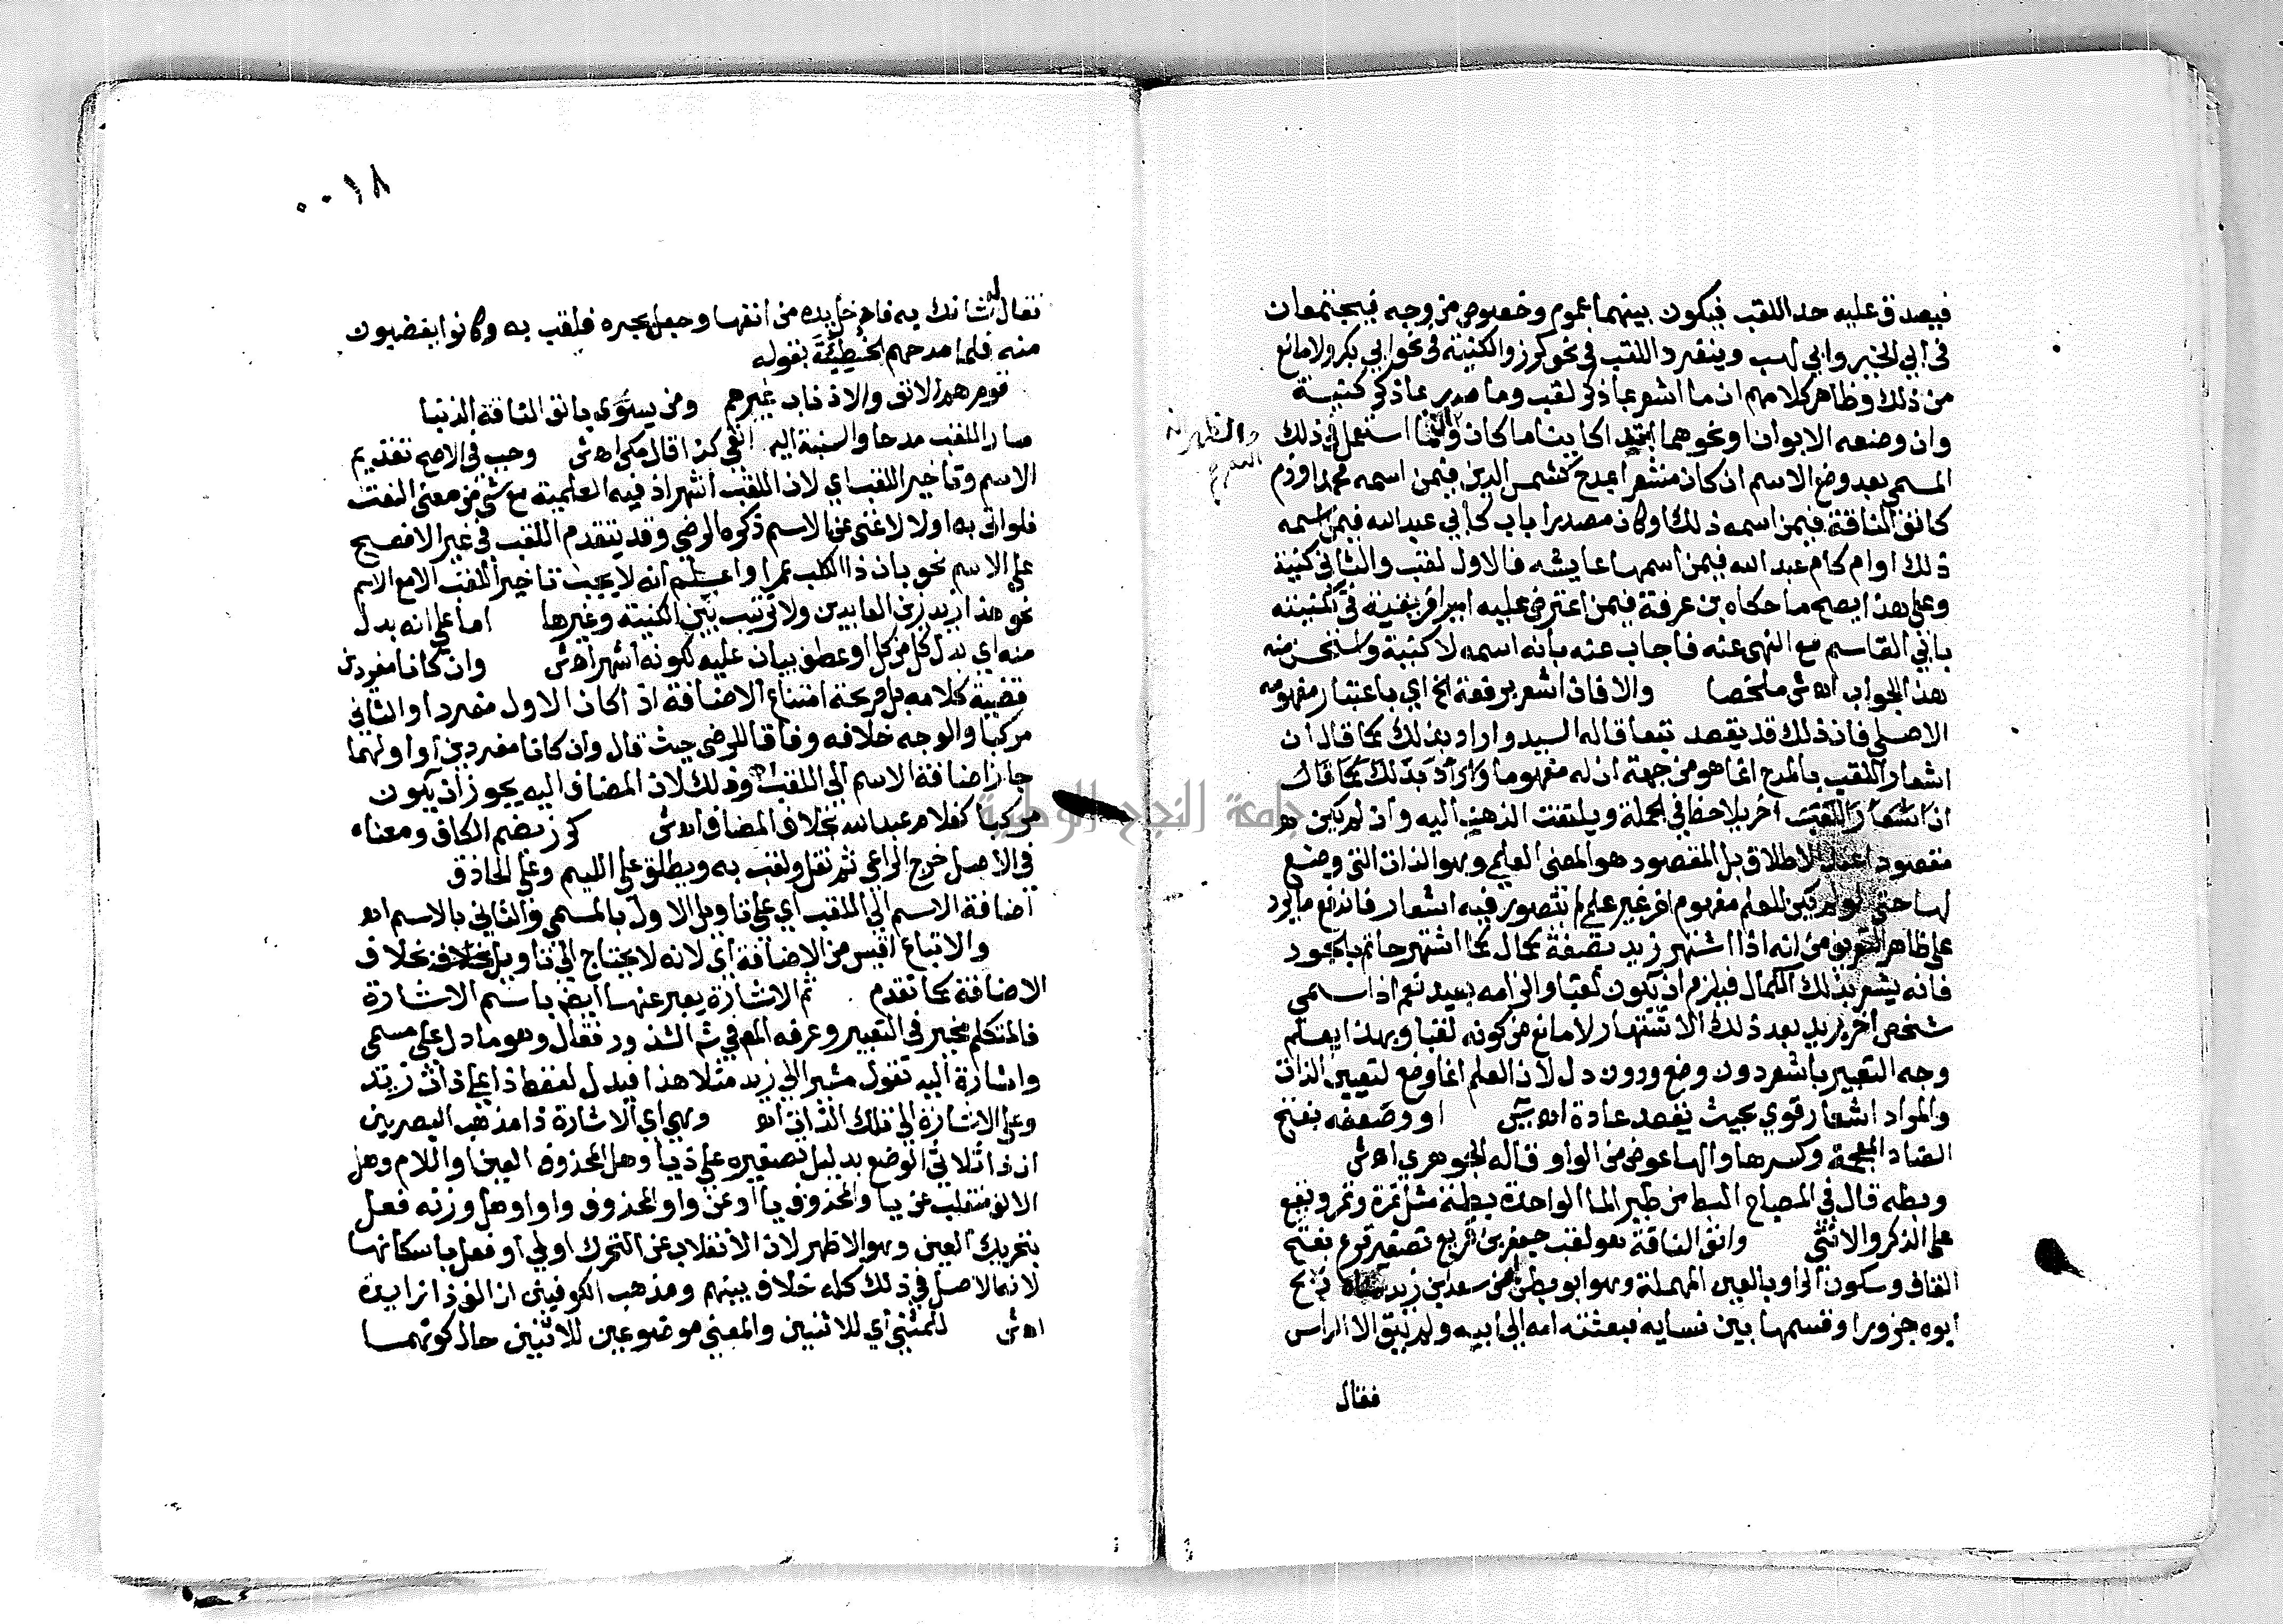 فيصدق عليه حد اللقب فيكون بينهما عموم وخصوص من وجه فيجتمعان
في ابي الخير وابي لهب وينفرد اللقب في نحو كرز والكنية في نحو ابي بكر ولا مانع
من ذلك وظاهر كلامهم ان ما اشعر بما ذكر لقب وما صدر بما ذكر كنيسة
وان وضعه الابوان او نحوهما ابتدا كاينا ما كان وان ما استعمل في ذلك
والظهر انه
المسمى بعد وضع الاسم ان كان مشعرا بمدح كشمس الدين فيمن اسمه محمد او ذم
كانف الناقة فيمن اسمه ذلك او كان مصدرا باب كابي عبد الله فيمن اسمه
ذلك او ام كام عبد الله فيمن اسمها عايشه فالاول لقب والثاني كنية
وعلى هذا يصح ما حكاه بن عرفة فيمن اعترض عليه امير افريقية في تكنيته
بابي القاسم مع النهى عنه فاجاب عنه بانه اسمه لا كنية واستحسن منه
هذا الجواب اه ش ملخصا والا فان اشعر برفعة الخ اي باعتبار مفهومه
الاصلي فان ذلك قد يقصد تبعا قاله السيد واراد بذلك كما قال ان
اشعار اللقب بالمدح انما هو من جهة ان له مفهوما واراد بذلك كما قال
ان اشعار اللقب اخر يلاحظ في الجملة ويلتفت الذهن اليه وان لم يكن هو
مقصودا عند الاطلاق بل المقصود هو المعنى العلمي وهو الذات التي وضع
لها حتى لو لم يكن للعلم مفهوم اخر غير علم لم يتصور فيه اشعار فاندفع ما يرد
على ظاهر التعريف من انه اذا اشتهر زيد بصفة كمال كما اشتهر حاتم بالجود
فانه يشعر بذلك الكمال فيلزم ان يكون لقبا والتزامه بعيد نعم اذا سمي
شخص اخر بزيد بعد ذلك الاشتهار لا مانع من كونه لقبا وبهذا يعلم
وجه التعبير باشعر دون وضع ودون دل لان العلم انما وضع لتعيين الذات
والمراد اشعار قوي بحيث يقصد عادة اه يس او وضعه بفتح
الضاد المعجمة وكسرها والها عوض من الواو قاله الجوهري اه ش
وبطه قال في المصباح البط من طير الما الواحدة بطة مثل تمرة وتمر ويقع
على الذكر والانثى وانف الناقة هو لقب جعفر بن قريع تصغير قرع بفتح
القاف وسكون الرا وبالعين المهملة وهو ابو بطن من سعد بن زيد مناه ذبح
ابوه جزورا وقسمها بين نسايه فبعثته امه الى ابيه ولم يبق الا الراس
فقال
٠٠١٨
فقال له شانك به فادخل يده من انفها وجعل يجره فلقب به وكانوا يغضبون
منه فلما مدحهم الحطيئة بقوله
قوم هم الانف والاذناب غيرهم ومن يسوي بانف الناقة الذنبا
صار اللقب مدحا والنسبة اليه انفي كذا قال مكي اه ش وجب في الاصح تقديم
الاسم وتاخير اللقب اي لان اللقب اشهر اذ فيه العلمية مع شي من معنى النعت
فلو اتى به اولا لاغنى عن الاسم ذكره الرضي وقد يتقدم اللقب في غير الافصح
على الاسم نحو بان ذا الكلب عمرا واعلم انه لا يجب تاخير اللقب الا مع الاسم
نحو هذا زيد زين العابدين ولا ترتيب بين الكنية وغيرها اما على انه بدل
منه اي بدل كل من كل او عطف بيان عليه لكونه اشهر اه ش وان كانا مفردين
قضية كلامه بل صريحة امتناع الاضافة اذا كان الاول مفردا والثاني
مركبا والوجه خلافه وفاقا للرضي حيث قال وان كانا مفردين او اولهما
جاز اضافة الاسم الى اللقب اه وذلك لان المضاف اليه يجوز ان يكون
مركبا كغلام عبد الله بخلاف المضاف اه ش كرز بضم الكاف ومعناه
في الاصل خرج الراعي ثم نقل ولقب به ويطلق على الليم وعلى الحاذق
اضافة الاسم الى اللقب اي على تاويل الاول بالمسمى والثاني بالاسم اه
والاتباع اقيس من الاضافة اي لانه لا يحتاج الى تاويل بخلاف
الاضافة كما تقدم ثم الاشارة يعبر عنها ايضا باسم الاشارة
فالمتكلم مخير في التعبير وعرفه المص في ش الشذور فقال وهو ما دل على مسمى
واشارة اليه تقول مشيرا الى زيد مثلا هذا فيدل لفظ ذا على ذات زيد
وعلى الاشارة الى تلك الذات اه وهي اي الاشارة ذا مذهب البصريين
ان ذا ثلاثي الوضع بدليل تصغيره على ذيا وهل المحذوف العين او اللام وهل
الالف منقلب عن يا والمحذوف يا او عن واو والمحذوف واو او هل وزنه فعل
بتحريك العين وهو الاظهر لان الانقلاب عن التحرك اولى او فعل باسكانها
لانه الاصل في ذلك كله خلاف بينهم ومذهب الكوفيين ان الف ذا زايدة
اه ش للمثنى اي للاثنين والمعنى موضوعين للاثنين حال كونهما
جامعة النجاح الوطنية